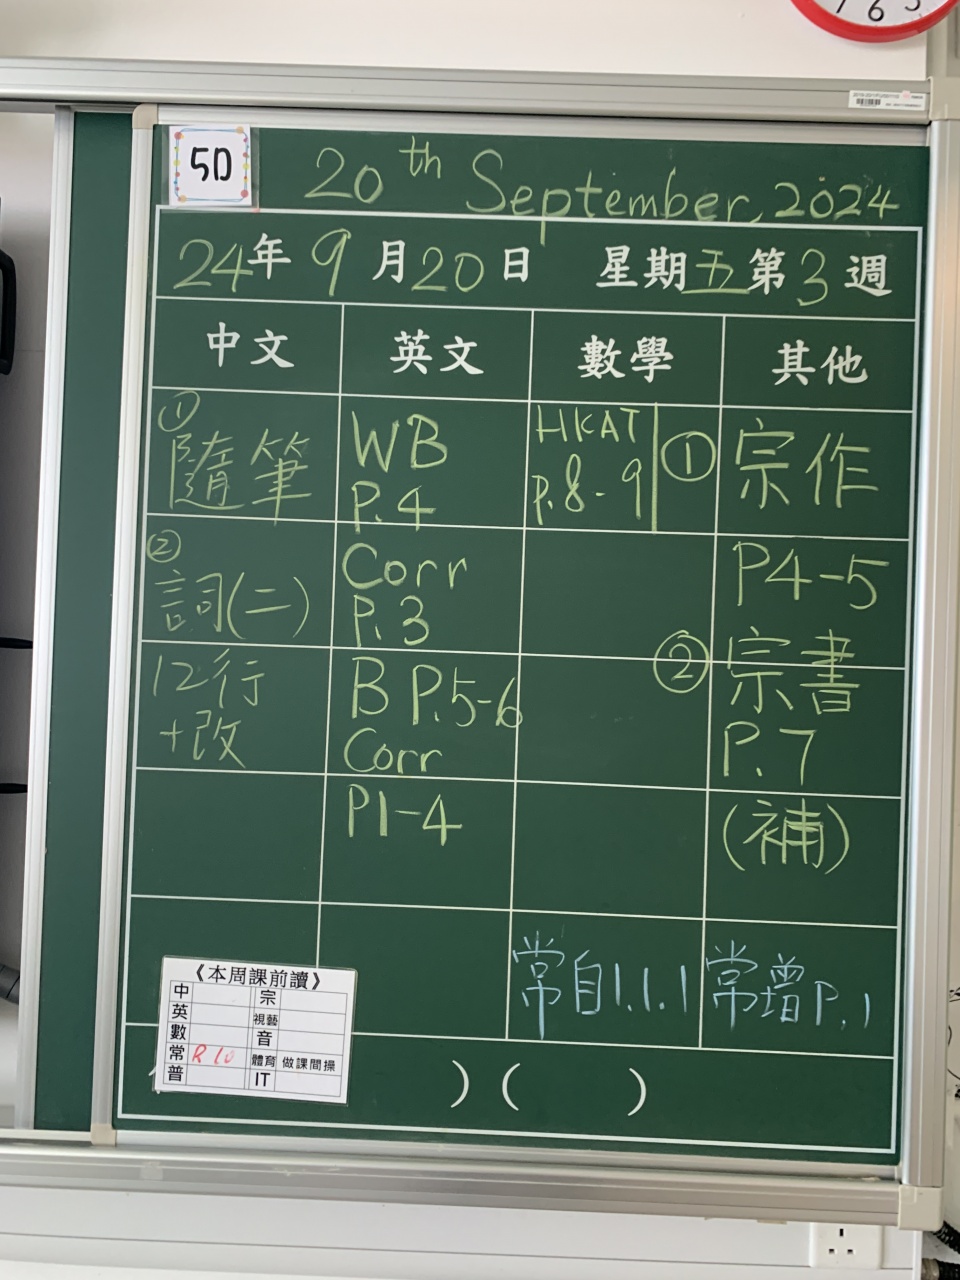 7 6 5
5D
20th September, 2024
24年9月20日 星期五第3週
中文 英文 數學 其他
①
隨筆
②
詞(二)
12行
+改
WB
P.4
Corr
P.3
B P.5-6
Corr
P1-4
HKAT
P.8-9
① 宗作
P4-5
② 宗書
P.7
(補)
常自1.1.1
常增P.1
《本周課前讀》
中 宗
英 視藝
數 音
常 R 10 體育 做課間操
普 IT
) ( )